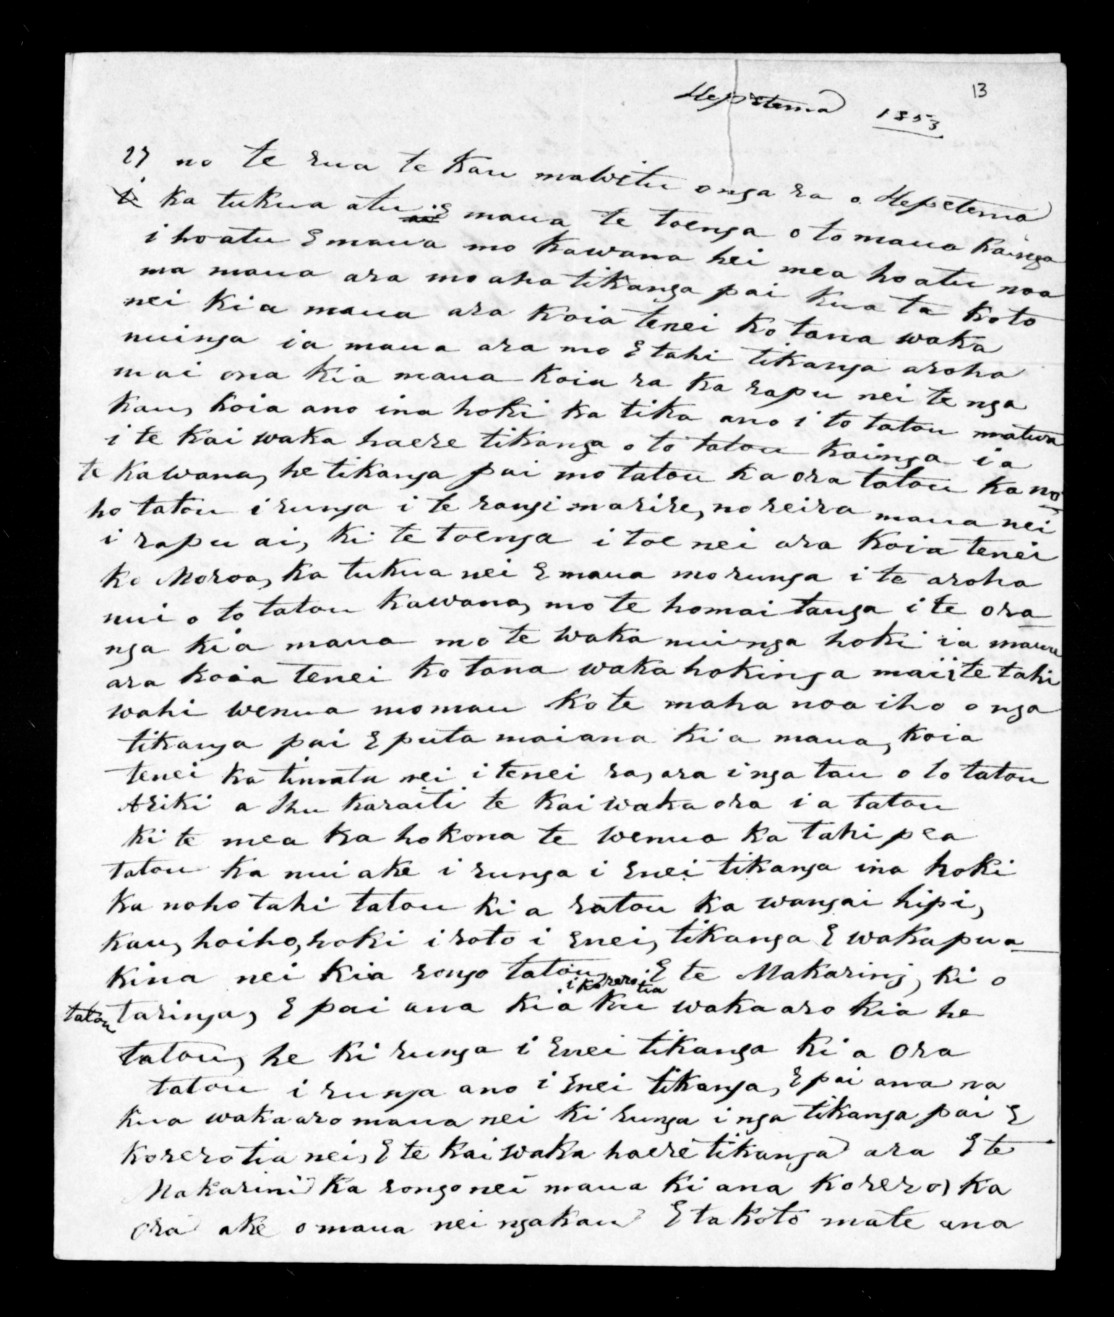 13
Hepetema 1853
27 no te rua te kau mawitu o nga ra o Hepetema
ka tukua atu E maua te toenga o to maua kainga
i hoatu E maua mo kawana hei mea hoatu noa
ma maua ara mo aha tikanga pai kua ta koto
nei kia maua ara koia tenei ko tana waka
nuinga ia maua ara mo Etahi tikanga aroha
mai ona kia maua koia ra ka rapu nei te nga
kau, koia ano ina hoki ka tika ano i to tatou matua
i te kai waka haere tikanga o to tatou kainga i a
te kawana, he tikanga pai mo tatou ka ora tatou ka no
ho tatou i runga i te rangimarire, no reira maua nei
i rapu ai, ki te toenga i toe nei ara koia tenei
ko Moroa, ka tukua nei E maua mo runga i te aroha
nui o to tatou kawana, mo te homai tanga i te ora
nga kia maua mo te waka nuinga hoki ia maua
ara koia tenei ko tana waka hokinga mai i te tahi
wahi wenua mo mau ko te maha noa iho o nga
tikanga pai E puta mai ana kia maua, koia
tenei ka timata nei i tenei ra, ara i nga tau o to tatou
Ariki a Ihu karaiti te kai waka ora i a tatou
ki te mea ka hokona te wenua ka tahi pea
tatou ka nui ake i runga i Enei tikanga ina hoki
ka noho tahi tatou ki a ratou ka wangai hipi,
kau, hoiho, hoki i roto i Enei, tikanga E waka pua
kina nei kia rongo tatou, E te Makarini, ki o
i korero tia
tatou taringa, E pai ana kia ku waka aro kia he
tatou, he ki runga i Enei tikanga ki a ora
tatou i runga ano i Enei tikanga, E pai ana na
kua waka aro maua nei ki runga i nga tikanga pai E
korero tia nei, E te kai waka haere tikanga ara E te
Makarini ka rongo nei maua ki ana korero, ka
ora ake o maua nei ngakau E takoto mate ana